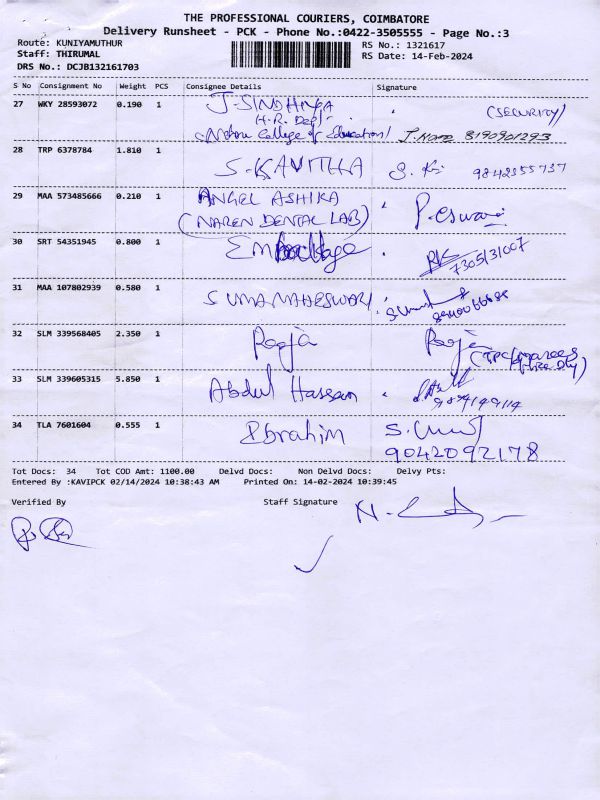 THE PROFESSIONAL COURIERS, COIMBATORE
Delivery Runsheet - PCK - Phone No.:0422-3505555 - Page No.:3
Route: KUNIYAMUTHUR
Staff: THIRUMAL
DRS No.: DCJB132161703
RS No.: 1321617
RS Date: 14-Feb-2024
S No Consignment No Weight PCS Consignee Details Signature
27 WKY 28593072 0.190 1 J. (SECURITY)
(H.R. Dep)
College of Education 8190901293
28 TRP 6378784 1.810 1 S. KAVITHA
29 MAA 573485666 0.210 1 ANGEL ASHIKA P. eswari
(NAREN DENTAL LAB)
30 SRT 54351945 0.800 1
7305131007
31 MAA 107802939 0.580 1 S UMAMAHESWARI
32 SLM 339568405 2.350 1 Pooja Pooja
33 SLM 339605315 5.850 1 Abdul Hassan
34 TLA 7601604 0.555 1 Ibrahim
9042092178
Tot Docs: 34 Tot COD Amt: 1100.00 Delvd Docs: Non Delvd Docs: Delvy Pts:
Entered By :KAVIPCK 02/14/2024 10:38:43 AM Printed On: 14-02-2024 10:39:45
Verified By Staff Signature